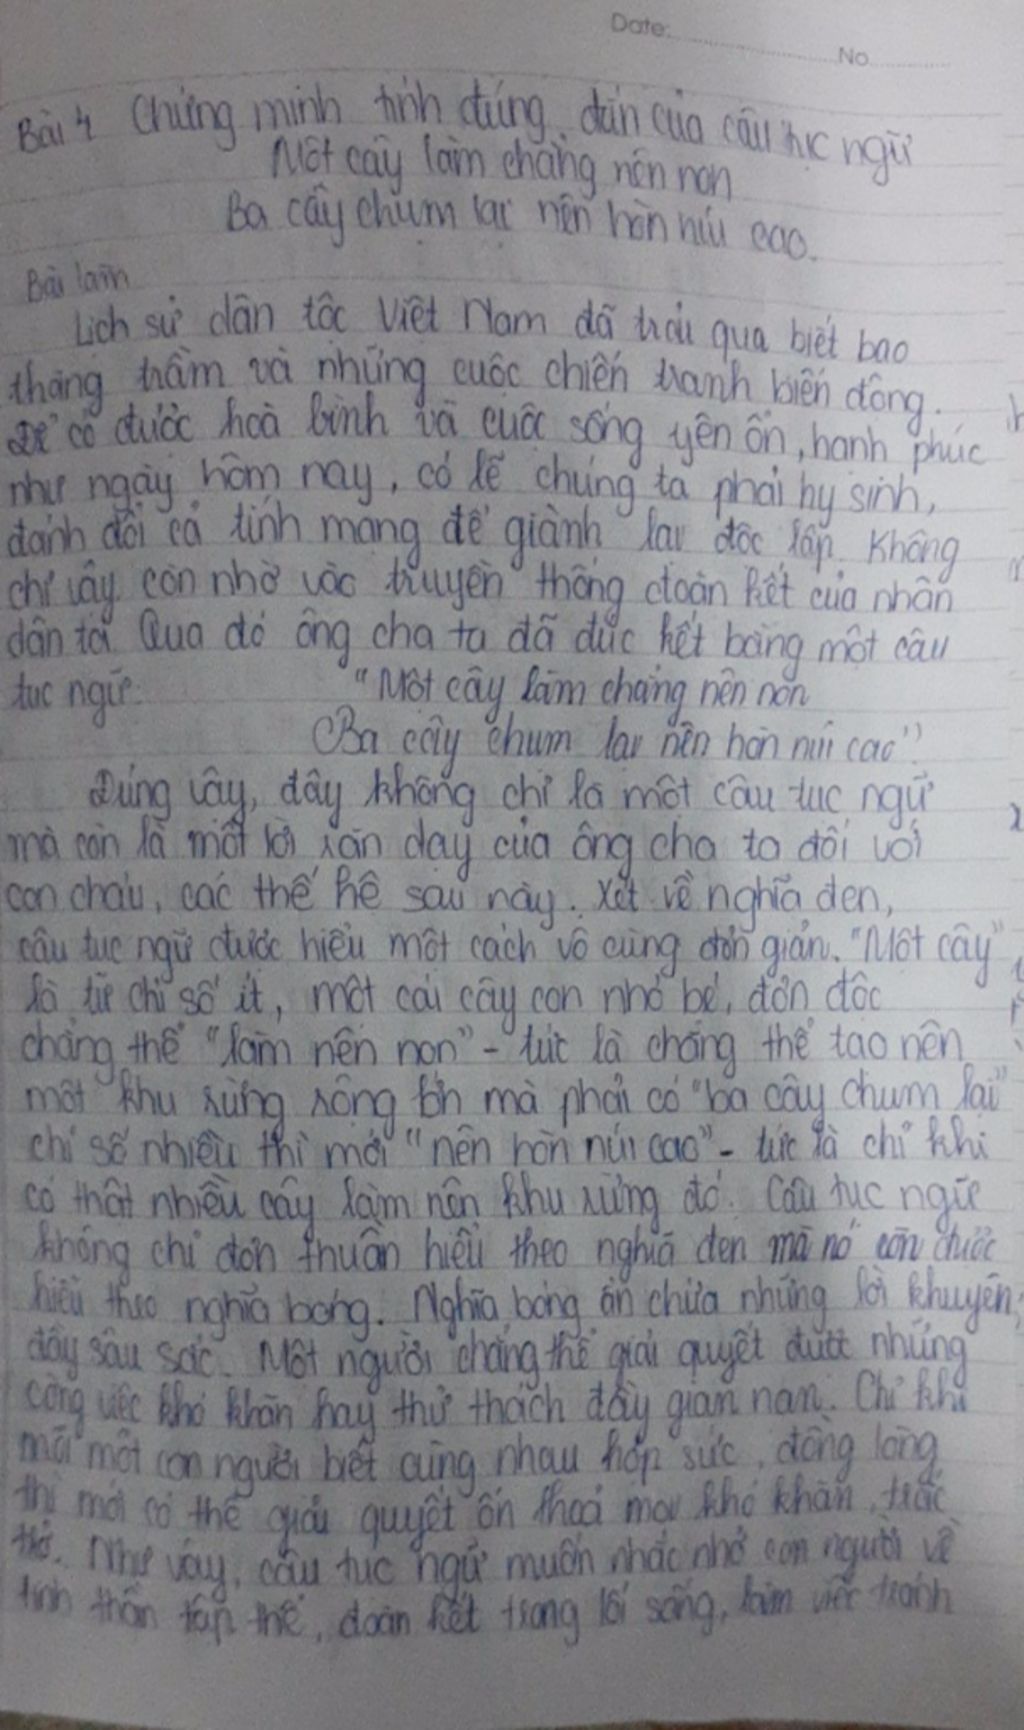 Date:
No
Bài 4 Chứng minh tính đúng đắn của câu tục ngữ
Một cây làm chẳng nên non
Ba cây chụm lại nên hòn núi cao.
Bài làm
Lịch sử dân tộc Việt Nam đã trải qua biết bao
thăng trầm và những cuộc chiến tranh biến động.
Để có được hoà bình và cuộc sống yên ổn, hạnh phúc
như ngày hôm nay, có lẽ chúng ta phải hy sinh,
đánh đổi cả tính mạng để giành lại độc lập. Không
chỉ vậy còn nhờ vào truyền thống đoàn kết của nhân
dân ta. Qua đó ông cha ta đã đúc kết bằng một câu
tục ngữ: "Một cây làm chẳng nên non
Ba cây chụm lại nên hòn núi cao".
Đúng vậy, đây không chỉ là một câu tục ngữ
mà còn là một lời răn dạy của ông cha ta đối với
con cháu, các thế hệ sau này. Xét về nghĩa đen,
câu tục ngữ được hiểu một cách vô cùng đơn giản. "Một cây"
là từ chỉ số ít, một cái cây con nhỏ bé, đơn độc
chẳng thể "làm nên non" - tức là chẳng thể tạo nên
một khu rừng rộng lớn mà phải có "ba cây chụm lại"
chỉ số nhiều thì mới "nên hòn núi cao" - tức là chỉ khi
có thật nhiều cây làm nên khu rừng đó. Câu tục ngữ
không chỉ đơn thuần hiểu theo nghĩa đen mà nó còn được
hiểu theo nghĩa bóng. Nghĩa bóng ẩn chứa những lời khuyên
đầy sâu sắc. Một người chẳng thể giải quyết được những
công việc khó khăn hay thử thách đầy gian nan. Chỉ khi
mỗi một con người biết cùng nhau hợp sức, đồng lòng
thì mới có thể giải quyết ổn thoả mọi khó khăn, trắc
trở. Như vậy, câu tục ngữ muốn nhắc nhở con người về
tinh thần tập thể, đoàn kết trong lối sống, làm việc tránh